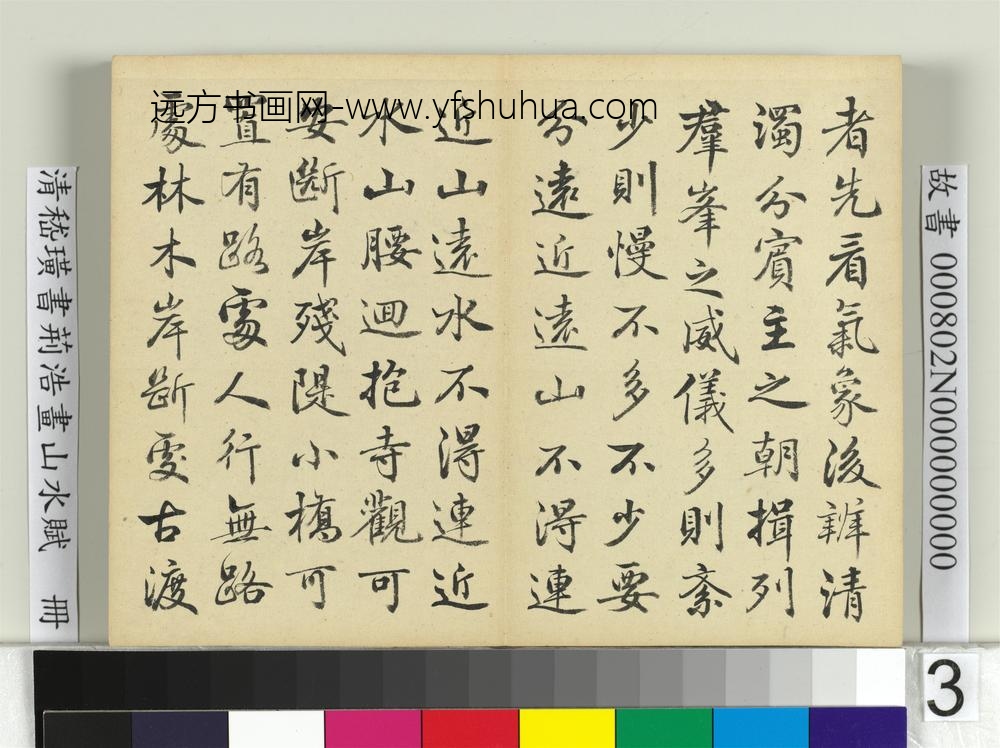 远方书画网-www.yfshuhua.com
者先看氣象後辨清
濁分賓主之朝揖列
羣峯之威儀多則紊
少則慢不多不少要
分遠近遠山不得連
近山遠水不得連近
水山腰迴抱寺觀可
安斷岸殘隄小橋可
置有路處人行無路
處林木岸斷處古渡
故書000802N000000000
清嵇璜書荊浩畫山水賦 冊
3